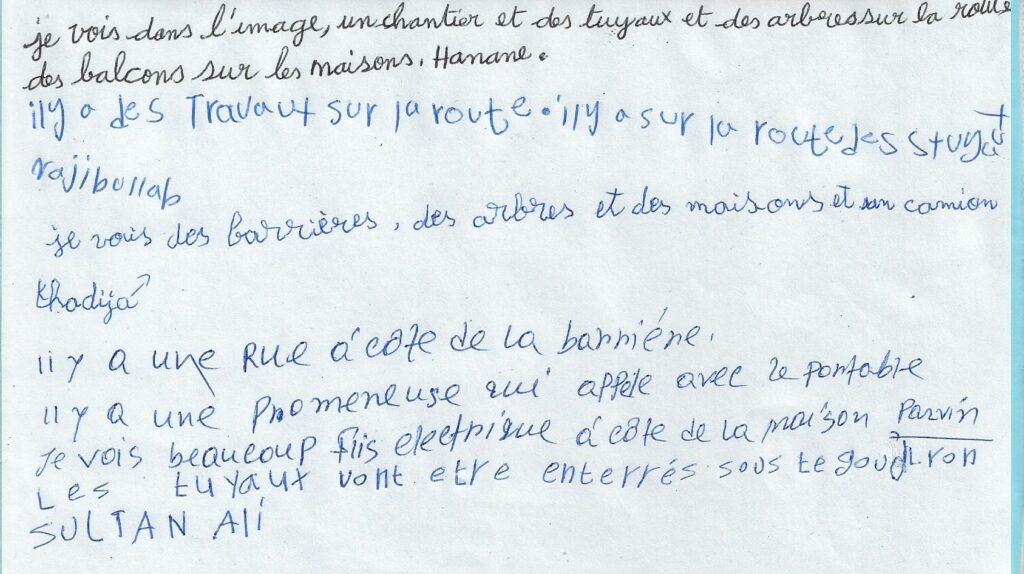 je vois dans l'image, un chantier et des tuyaux et des arberes sur la route
des balcons sur les maisons. Hanane.
il y a des Travaut sur la route. il y a sur la route des stuyaut
rajibullab
je vois des barrières, des arbres et des maisons et un camion
Khadija
il y a une RUE à côte de la barriére.
il y a une promeneuse qui appéle avec le portable
Je vois beaucoup fliis electrique à côte de la maison Parvin
Les tuyaux vont etre enterrés sous te goudron
SULTAN Ali